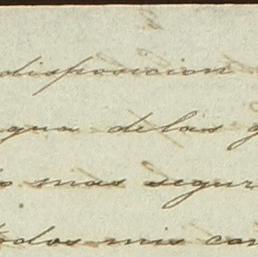 disposicion
gua delas g
o mas segur
todos mis con